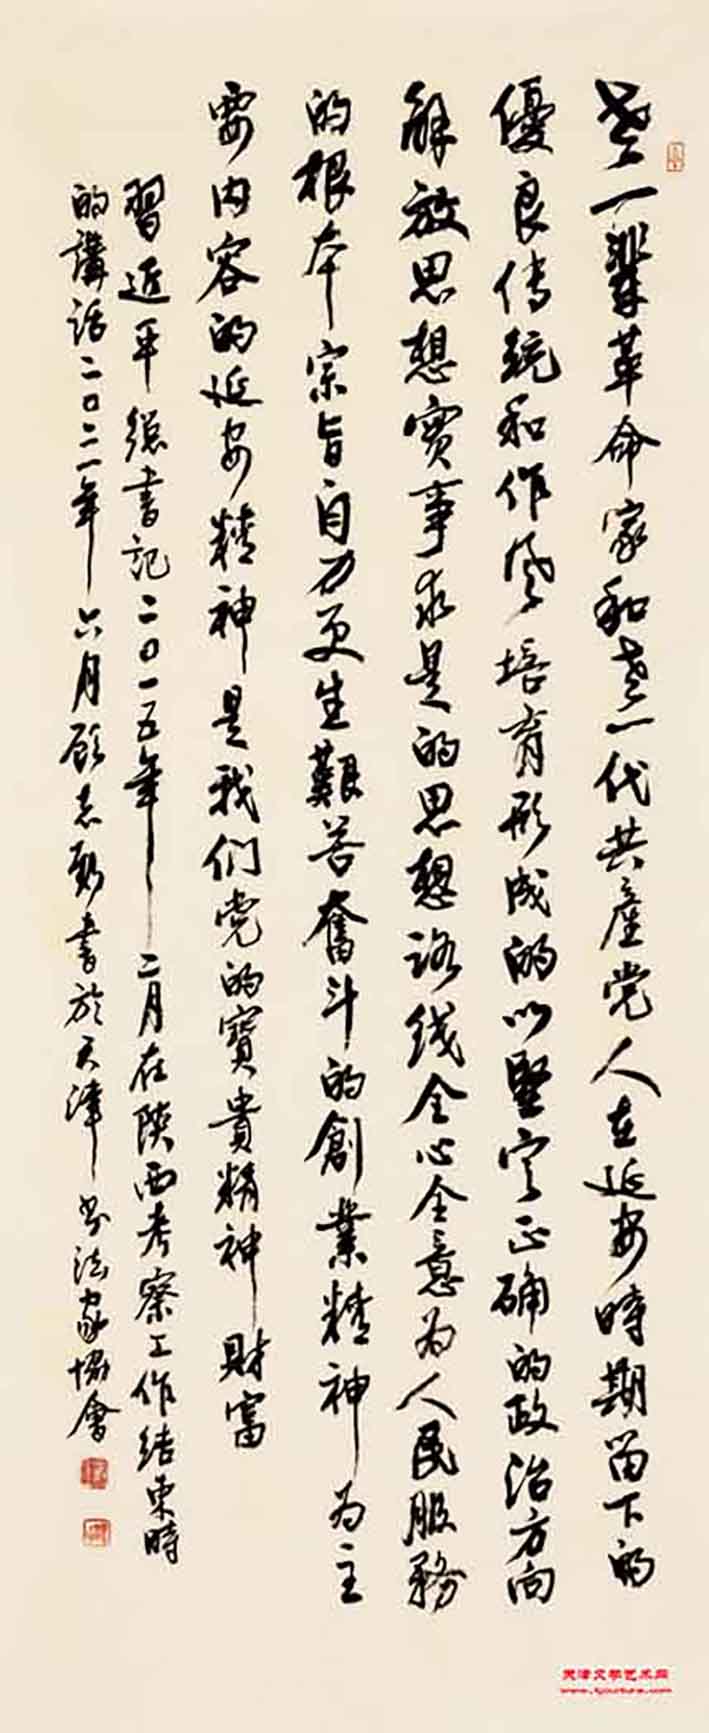 老一輩革命家和老一代共產党人在延安時期留下的
優良傳統和作风培育形成的以堅定正确的政治方向
解放思想实事求是的思想路线全心全意为人民服務
的根本宗旨自力更生艱苦奮斗的創業精神为主
要内容的延安精神是我们党的寶貴精神財富
習近平總書記二〇一五年二月在陝西考察工作结束時
的講話二〇二一年六月顾志勇書於天津书法家協會
天津文学艺术网